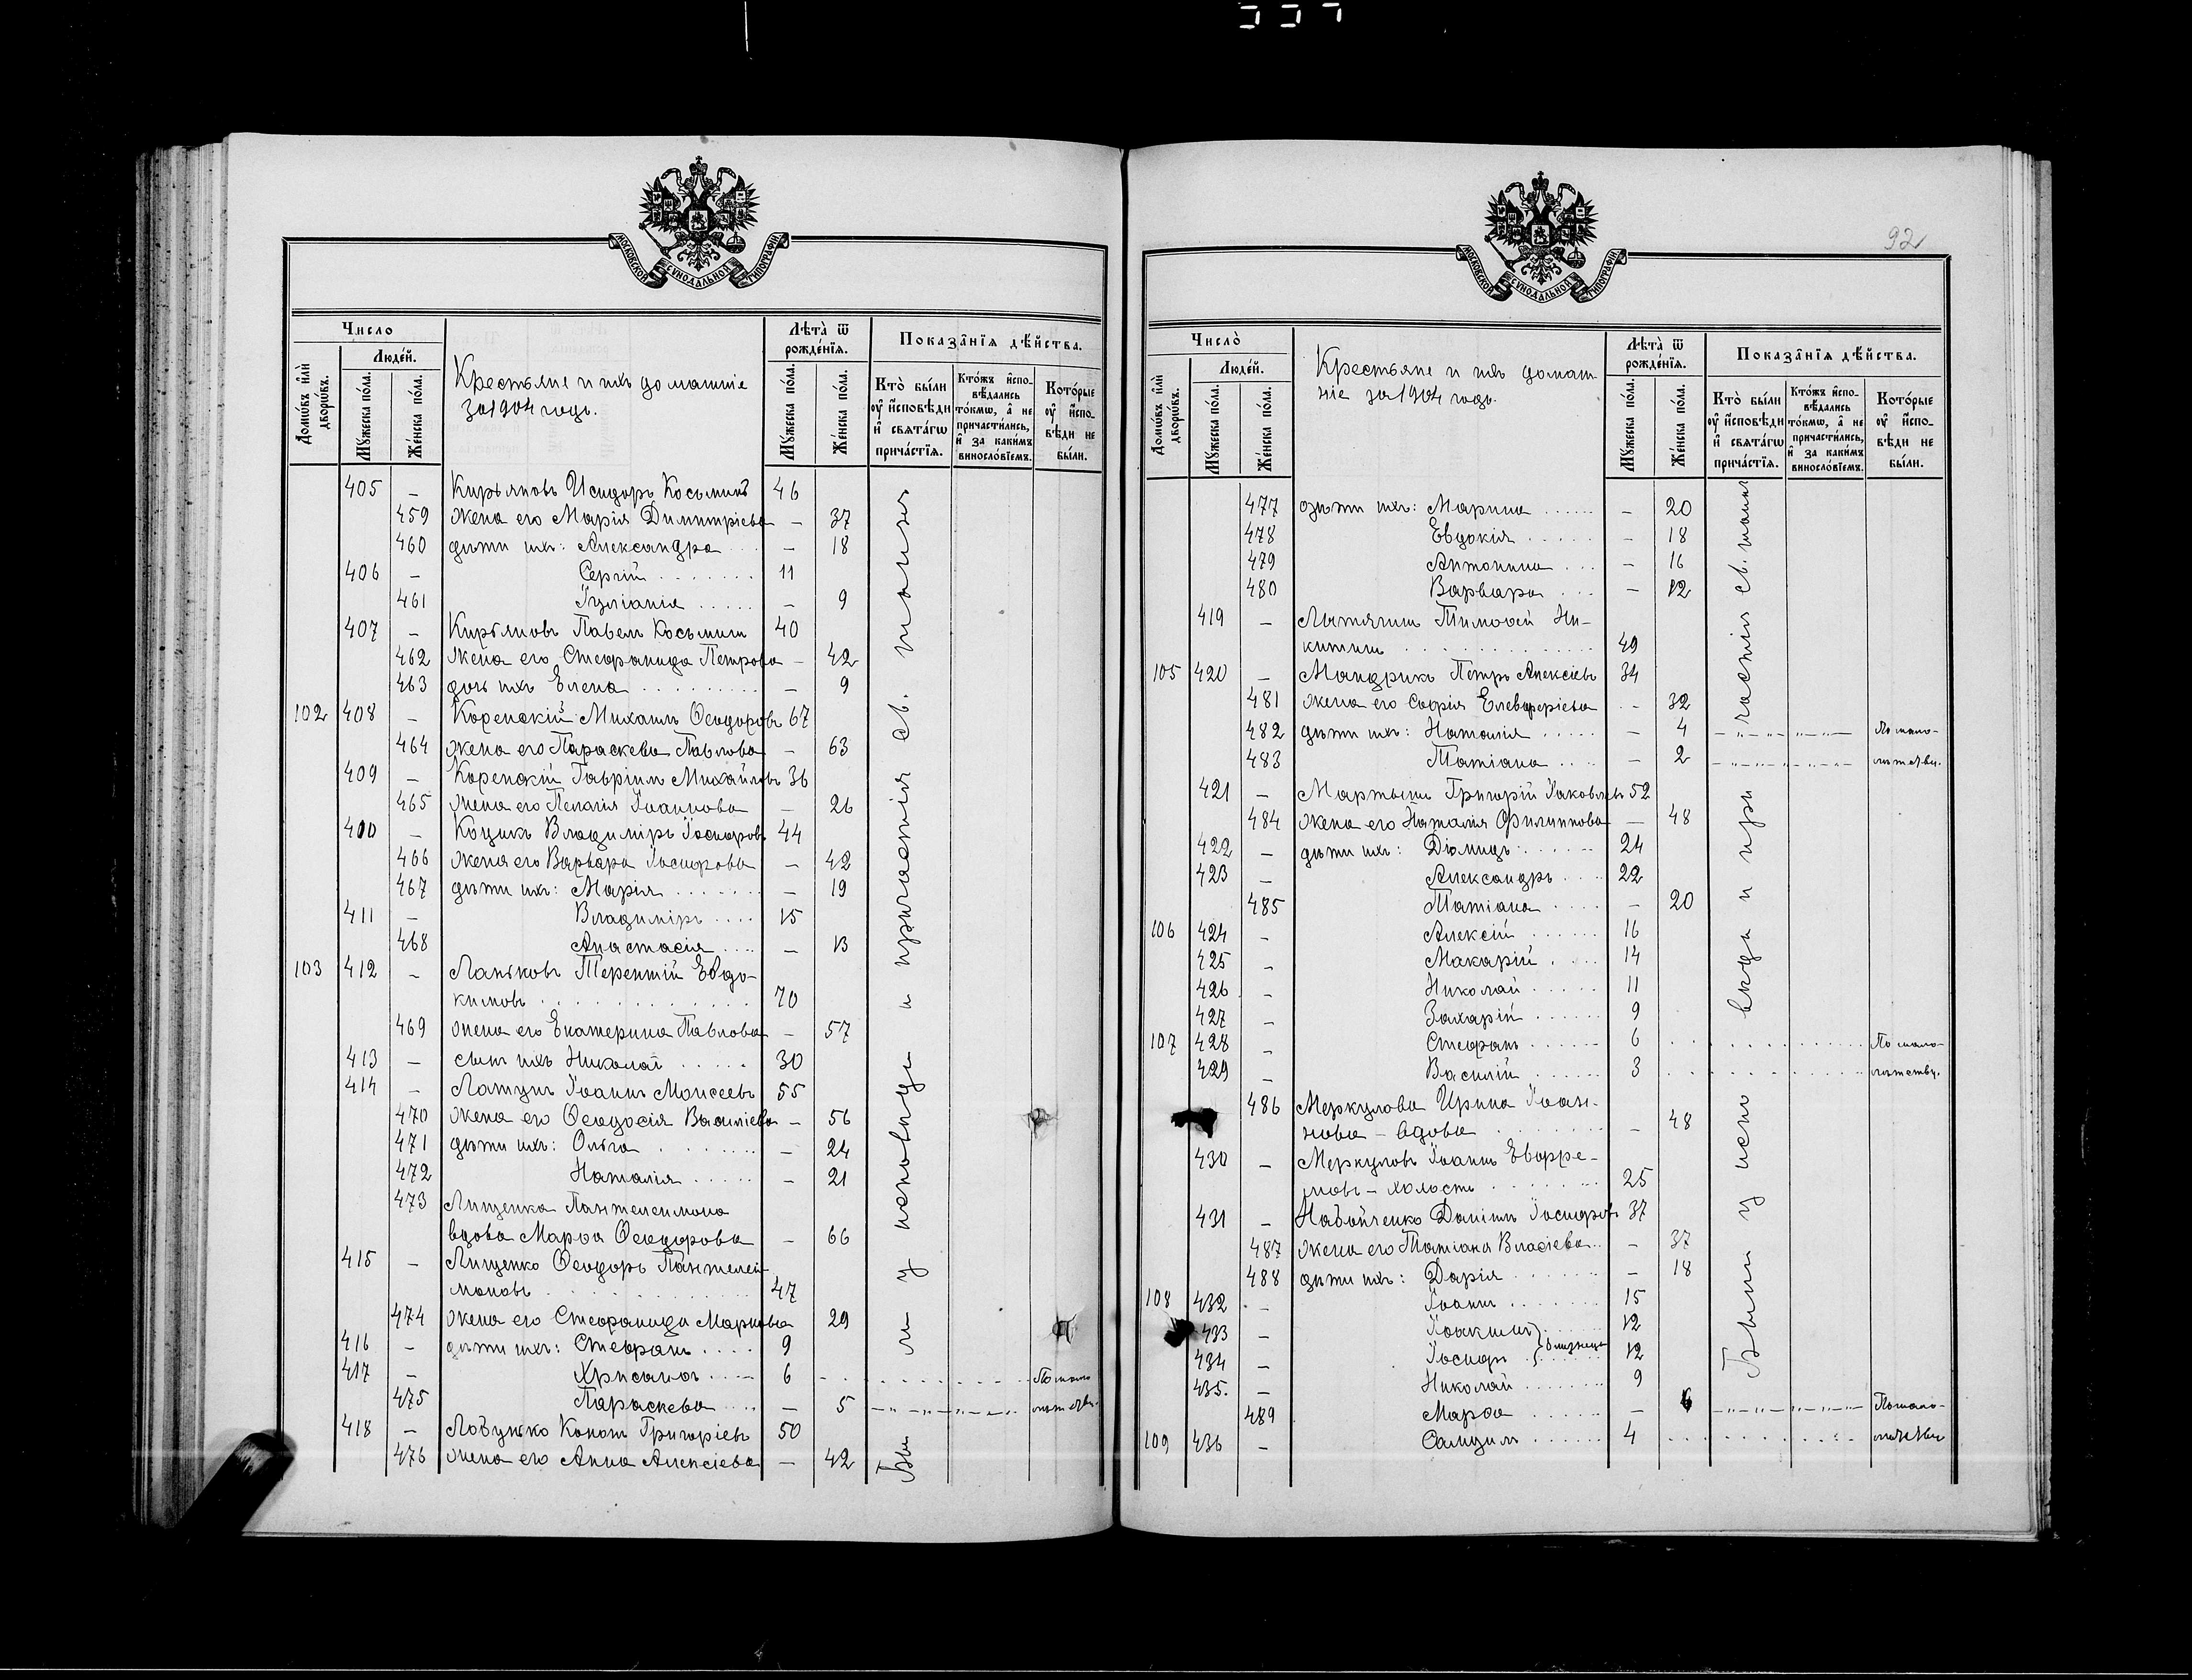 МОСКОВСКОЙ СѴНОДАЛЬНОЙ ТИПОГРАФІИ
Число
Людей.
Домѡвъ или дворѡвъ.
Мужеска пола.
Женска пола.
Крестьяне и ихъ домашніе
за 1904 годъ.
Лѣта ѿ рожденїѧ.
Мужеска пола.
Женска пола.
Показанїѧ дѣйства.
Кто были оу исповѣди и свѧтагѡ причастїѧ.
Ктожъ исповѣдались токмѡ, а не причастились, и за какимъ винословїемъ.
Которые оу исповѣди не были.
405 – Кирьяновъ Исидоръ Косьминъ 46
459 жена его Марія Димитріева – 37
460 дѣти ихъ: Александра – 18
406 – Сергій 11
461 Іуліанія – 9
407 – Кирьяновъ Павелъ Косьминъ 40
462 жена его Стефанида Петрова – 42
463 дочь ихъ Елена – 9
102 408 – Коренскій Михаилъ Ѳеодоровъ 67
464 жена его Параскева Павлова – 63
409 – Коренскій Гавріилъ Михайловъ 36
465 жена его Пелагія Іоаннова – 26
410 – Коцикъ Владиміръ Іосифовъ 44
466 жена его Варвара Іосифова – 42
467 дѣти ихъ: Марія – 19
411 – Владиміръ 15
468 Анастасія – 13
103 412 – Ланьковъ Терентій Евдо-
кимовъ 70
469 жена его Екатерина Павлова – 57
413 – сынъ ихъ Николай 30
414 – Латушъ Іоаннъ Моисеевъ 55
470 жена его Ѳеодосія Васильева – 56
471 дѣти ихъ: Ольга – 24
472 Наталія – 21
473 Лищенка Пантелеимона
вдова Марѳа Ѳеодорова – 66
415 – Лищенко Ѳеодоръ Пантелей-
моновъ 47
474 жена его Стефанида Маркова 29
416 – дѣти ихъ: Стефанъ 9
417 – Хрисанѳъ 6 По мало-
475 Параскева – 5 лѣтству.
418 – Лобунько Кононъ Григоріевъ 50
476 жена его Анна Алексіева – 42
Были у исповѣди и причастія св. таинъ
92
МОСКОВСКОЙ СѴНОДАЛЬНОЙ ТИПОГРАФІИ
Число
Людей.
Домѡвъ или дворѡвъ.
Мужеска пола.
Женска пола.
Крестьяне и ихъ домаш-
ніе за 1904 годъ.
Лѣта ѿ рожденїѧ.
Мужеска пола.
Женска пола.
Показанїѧ дѣйства.
Кто были оу исповѣди и свѧтагѡ причастїѧ.
Ктожъ исповѣдались токмѡ, а не причастились, и за какимъ винословїемъ.
Которые оу исповѣди не были.
477 дѣти ихъ: Марина – 20
478 Евдокія – 18
479 Антонина – 16
480 Варвара – 12
419 – Латягинъ Тимоѳей Ни-
китинъ 49
105 420 – Мандрикъ Петръ Алексіевъ 34
481 жена его Софія Елевферіева – 32
482 дѣти ихъ: Наталія – 4 По мало-
483 Татіана – 2 лѣтству.
421 – Мартынъ Григорій Іаковлевъ 52
484 жена его Наталія Филиппова – 48
422 – дѣти ихъ: Діомидъ 24
423 – Александръ 22
485 Татіана – 20
106 424 – Алексій 16
425 – Макарій 14
426 – Николай 11
427 – Захарій 9
107 428 – Стефанъ 6 По мало-
429 – Василій 3 лѣтству.
486 Меркулова Ирина Іоан-
нова – вдова – 48
430 – Меркуловъ Іоаннъ Евфре-
мовъ – холостъ 25
431 – Набойченко Даніилъ Іосифовъ 37
487 жена его Татіана Власіева – 37
488 дѣти ихъ: Дарія – 18
108 432 – Іоаннъ 15
433 – Іоакимъ } близнецы 12
434 – Іосифъ 12
435. – Николай 9
489 Марѳа – 6 По мало-
109 436 – Самуилъ 4 лѣтству
Были у исповѣди и причастія св. таинъ